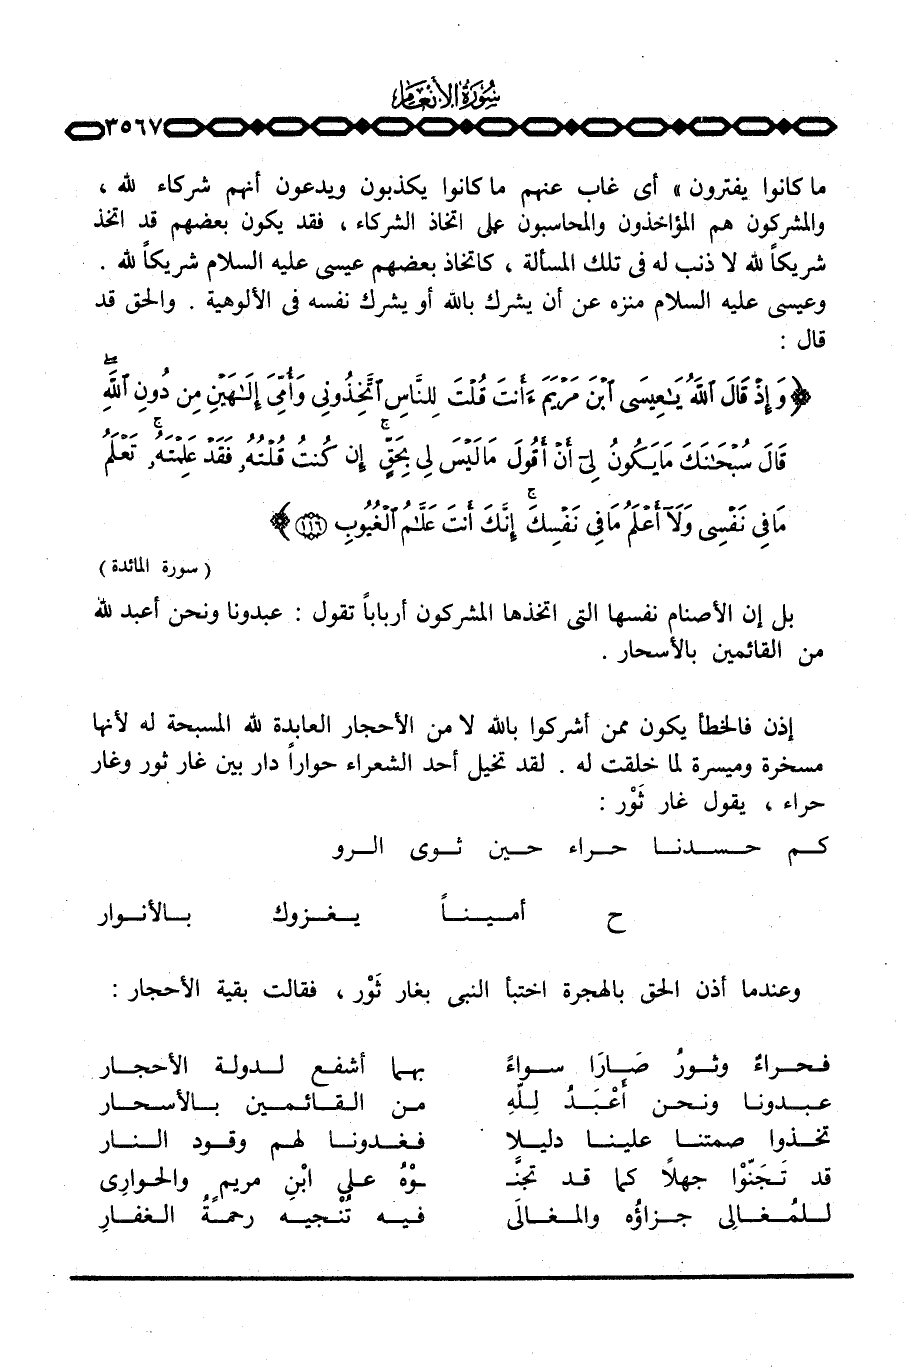 سورة الأنعام
٣٥٦٧
ما كانوا يفترون » أى غاب عنهم ما كانوا يكذبون ويدعون أنهم شركاء لله ،
والمشركون هم المؤاخذون والمحاسبون على اتخاذ الشركاء ، فقد يكون بعضهم قد اتخذ
شريكاً لله لا ذنب له فى تلك المسألة ، كاتخاذ بعضهم عيسى عليه السلام شريكاً لله .
وعيسى عليه السلام منزه عن أن يشرك بالله أو يشرك نفسه فى الألوهية . والحق قد
قال :
﴿ وَإِذْ قَالَ ٱللَّهُ يَـٰعِيسَى ٱبْنَ مَرْيَمَ ءَأَنتَ قُلْتَ لِلنَّاسِ ٱتَّخِذُونِى وَأُمِّىَ إِلَـٰهَيْنِ مِن دُونِ ٱللَّهِۖ
قَالَ سُبْحَـٰنَكَ مَا يَكُونُ لِىٓ أَنْ أَقُولَ مَا لَيْسَ لِى بِحَقٍّۚ إِن كُنتُ قُلْتُهُۥ فَقَدْ عَلِمْتَهُۥۚ تَعْلَمُ
مَا فِى نَفْسِى وَلَآ أَعْلَمُ مَا فِى نَفْسِكَۚ إِنَّكَ أَنتَ عَلَّـٰمُ ٱلْغُيُوبِ ١١٦ ﴾
( سورة المائدة )
بل إن الأصنام نفسها التى اتخذها المشركون أرباباً تقول : عبدونا ونحن أعبد لله
من القائمين بالأسحار .
إذن فالخطأ يكون ممن أشركوا بالله لا من الأحجار العابدة لله المسبحة له لأنها
مسخرة وميسرة لما خلقت له . لقد تخيل أحد الشعراء حواراً دار بين غار ثور وغار
حراء ، يقول غار ثَوْر :
كم حسدنا حراء حين ثوى الرو
ح أميناً يغزوك بالأنوار
وعندما أذن الحق بالهجرة اختبأ النبى بغار ثَوْر ، فقالت بقية الأحجار :
فحراءُ وثورُ صَارَا سواءً بهما أشفع لدولة الأحجار
عبدونا ونحن أَعْبَدُ لِلَّهِ من القائمين بالأسحار
تخذوا صمتنا علينا دليلا فغدونا لهم وقود النار
قد تَجَنَّوْا جهلاً كما قد تجنَّـ ـوْهُ على ابْنِ مريم والحوارى
للمُغالِى جزاؤه والمغالَى فيه تُنْجيه رحمةُ الغفارِ